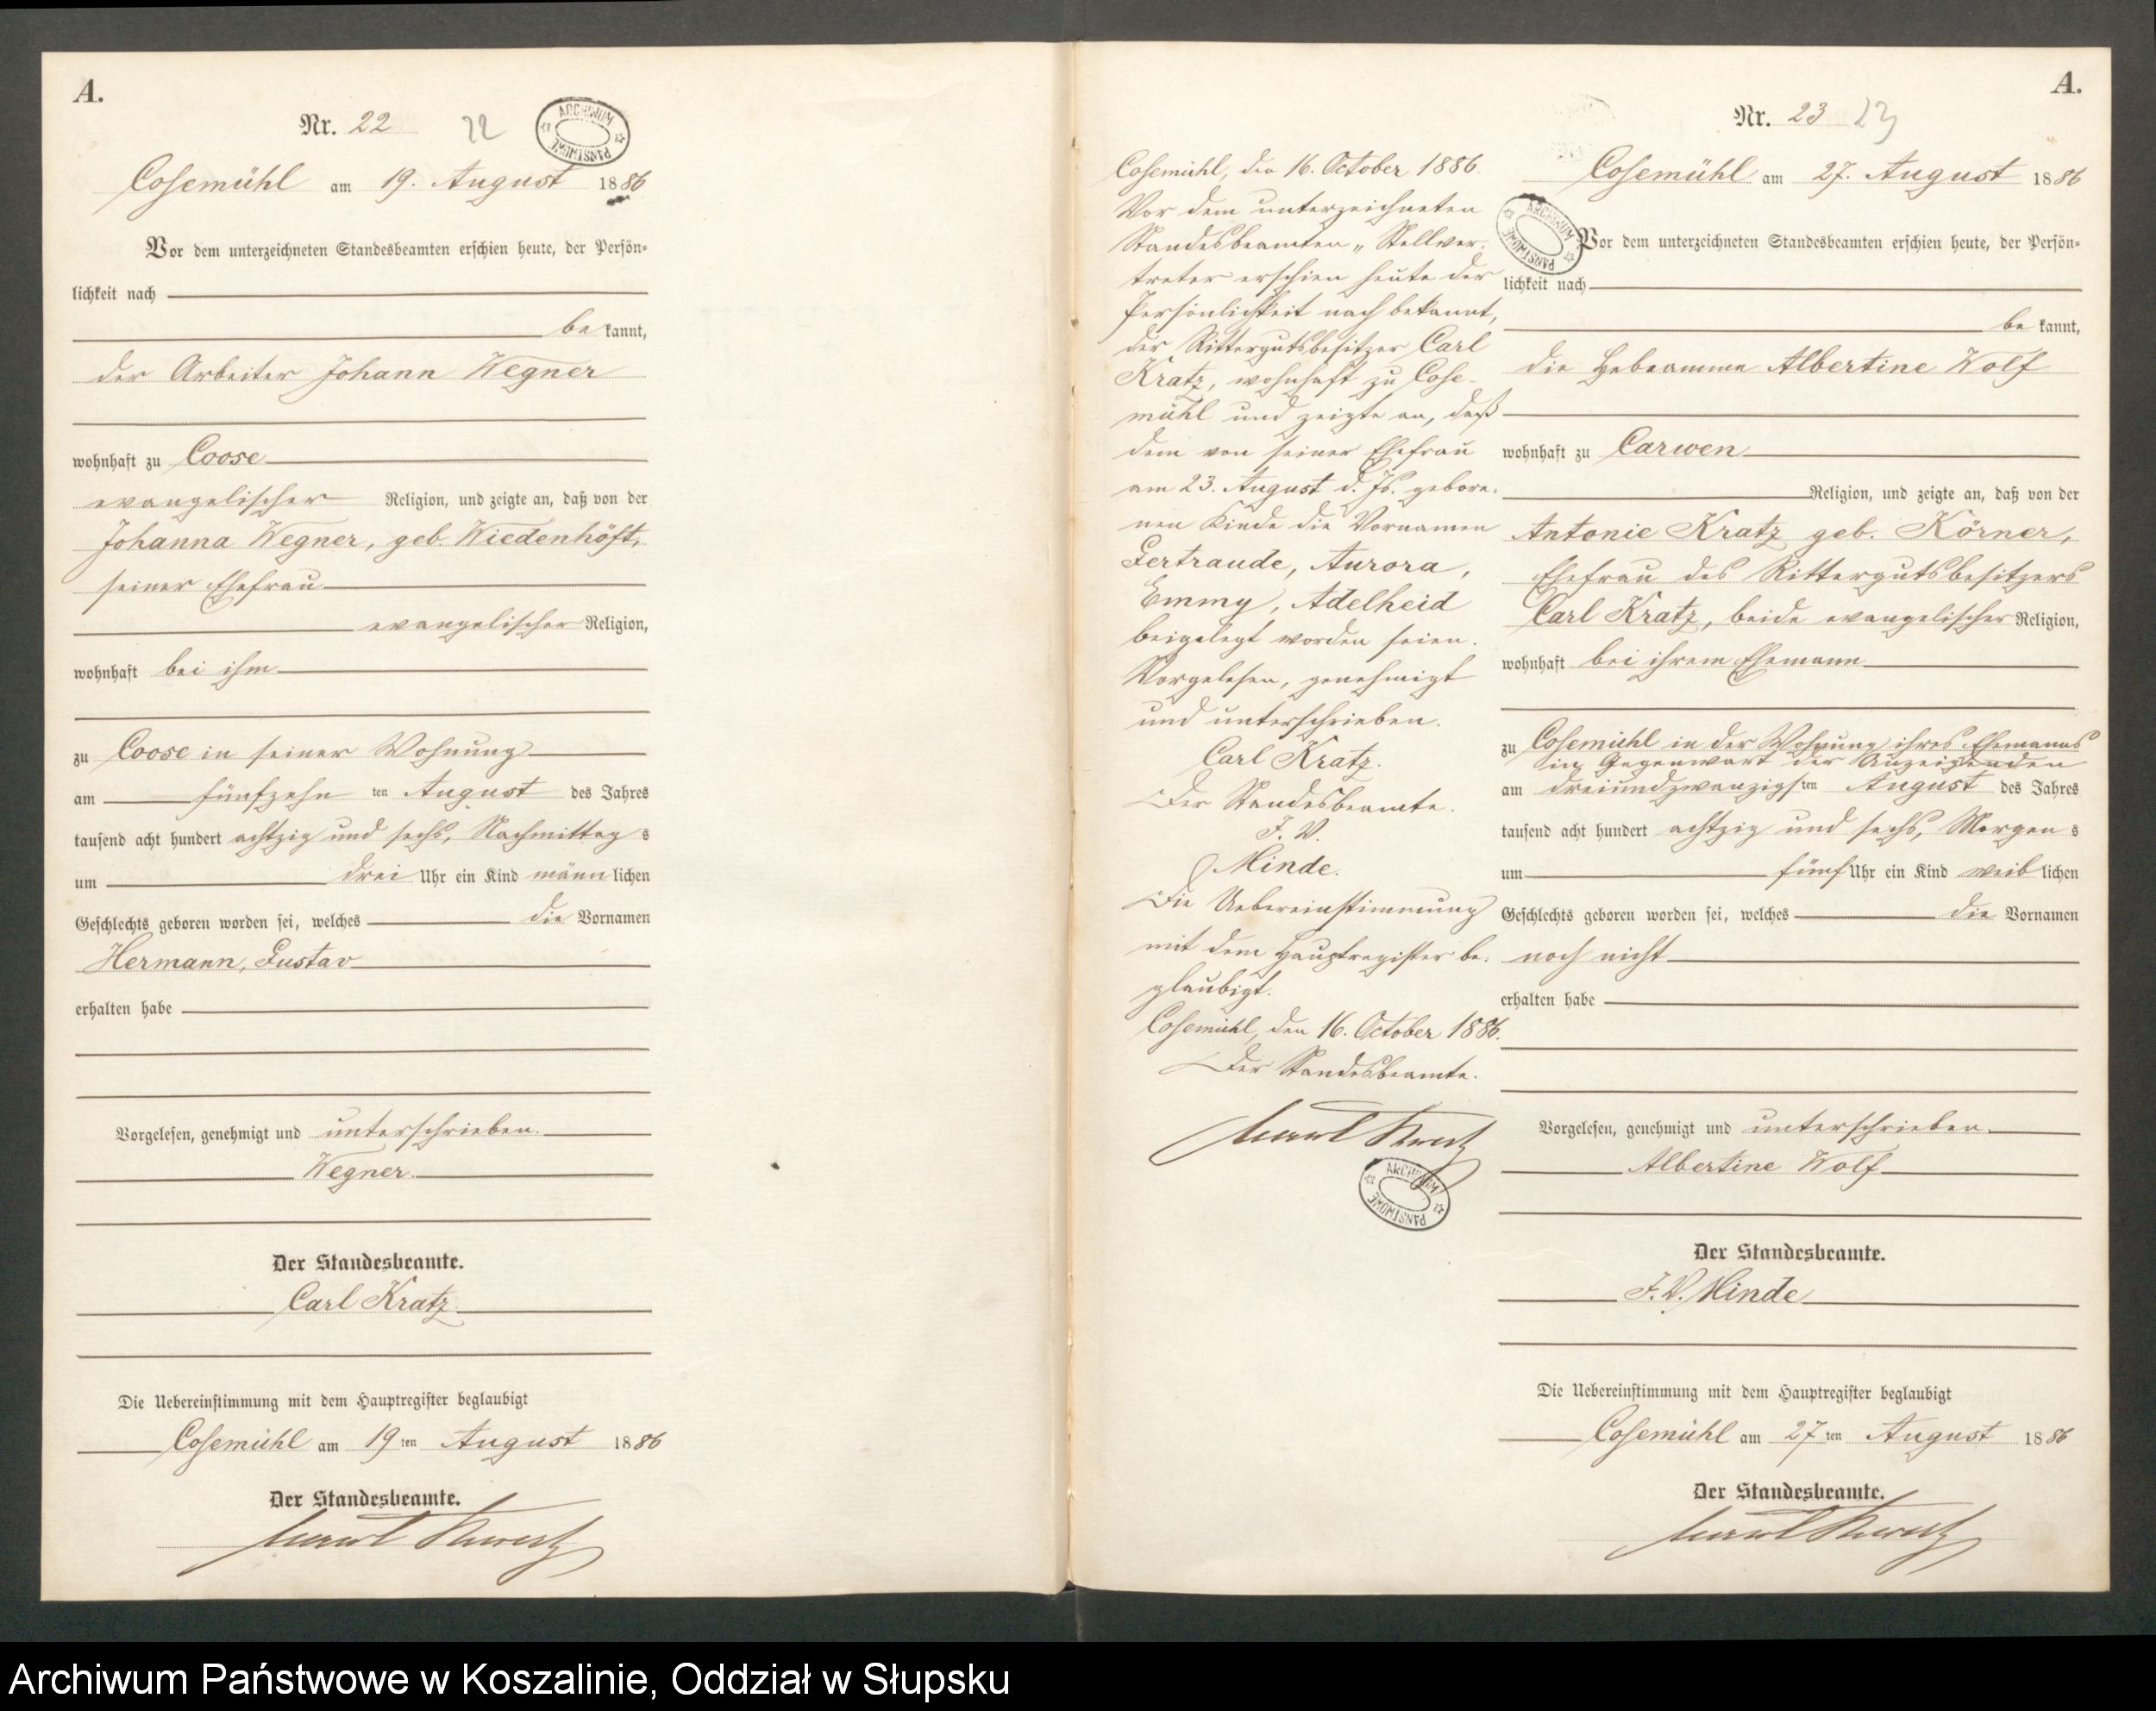 A.
Nr. 22 22
ARCHIWUM PAŃSTWOWE
Cosemühl am 19. August 1886
Vor dem unterzeichneten Standesbeamten erschien heute, der Persön-
lichkeit nach
be kannt,
der Arbeiter Johann Wegner
wohnhaft zu Coose
evangelischer Religion, und zeigte an, daß von der
Johanna Wegner, geb. Wiedenhöft,
seiner Ehefrau
evangelischer Religion,
wohnhaft bei ihm
zu Coose in seiner Wohnung
am fünfzehn ten August des Jahres
tausend acht hundert achtzig und sechs, Nachmittag s
um drei Uhr ein Kind männ lichen
Geschlechts geboren worden sei, welches die Vornamen
Hermann, Gustav
erhalten habe
Vorgelesen, genehmigt und unterschrieben.
Wegner.
Der Standesbeamte.
Carl Kratz.
Die Uebereinstimmung mit dem Hauptregister beglaubigt
Cosemühl am 19 ten August 1886
Der Standesbeamte.
Carl Kratz
Cosemühl, den 16. October 1886.
Vor dem unterzeichneten
Standesbeamten „ Stellver-
treter erschien heute der
Persönlichkeit nach bekannt,
der Rittergutsbesitzer Carl
Kratz, wohnhaft zu Cose-
mühl und zeigte an, daß
dem von seiner Ehefrau
am 23. August d. Js. gebore-
nen Kinde die Vornamen
Gertraude, Aurora,
Emmy, Adelheid
beigelegt worden seien.
Vorgelesen, genehmigt
und unterschrieben.
Carl Kratz.
Der Standesbeamte.
J. V.
Minde.
Die Uebereinstimmung
mit dem Hauptregister be-
glaubigt.
Cosemühl, den 16. October 1886.
Der Standesbeamte.
Carl Kratz
ARCHIWUM PAŃSTWOWE
A.
Nr. 23 23
Cosemühl am 27. August 1886
ARCHIWUM PAŃSTWOWE
Vor dem unterzeichneten Standesbeamten erschien heute, der Persön-
lichkeit nach
be kannt,
die Hebeamme Albertine Wolf
wohnhaft zu Carwen
Religion, und zeigte an, daß von der
Antonie Kratz geb. Körner,
Ehefrau des Rittergutsbesitzers
Carl Kratz, beide evangelischer Religion,
wohnhaft bei ihrem Ehemann
zu Cosemühl in der Wohnung ihres Ehemanns
in Gegenwart der Anzeigenden
am dreiundzwanzigs ten August des Jahres
tausend acht hundert achtzig und sechs, Morgen s
um fünf Uhr ein Kind weib lichen
Geschlechts geboren worden sei, welches die Vornamen
noch nicht
erhalten habe
Vorgelesen, genehmigt und unterschrieben.
Albertine Wolf
Der Standesbeamte.
J. V. Minde
Die Uebereinstimmung mit dem Hauptregister beglaubigt
Cosemühl am 27 ten August 1886
Der Standesbeamte.
Carl Kratz
Archiwum Państwowe w Koszalinie, Oddział w Słupsku